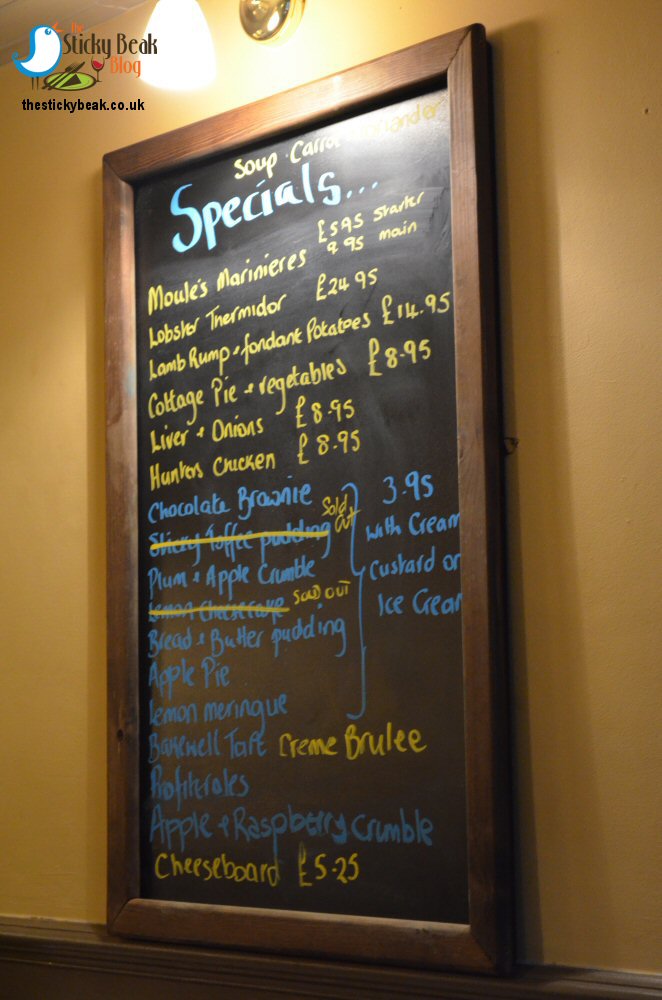 the
Sticky Beak
Blog
thestickybeak.co.uk
Soup · Carrot Coriander
Specials...
Moule's Marinieres £5.95 starter
9.95 main
Lobster Thermidor £24.95
Lamb Rump + fondant Potatoes £14.95
Cottage Pie + vegetables £8.95
Liver + Onions £8.95
Hunters Chicken £8.95
Chocolate Brownie 3.95
Sticky Toffee pudding Sold Out
with Cream
Plum + Apple Crumble
Custard or
Lemon Cheesecake Sold OUT
Ice Cream
Bread + Butter pudding
Apple Pie
Lemon meringue
Bakewell Tart Creme Brulee
Profiteroles
Apple + Raspberry Crumble
Cheeseboard £5.25